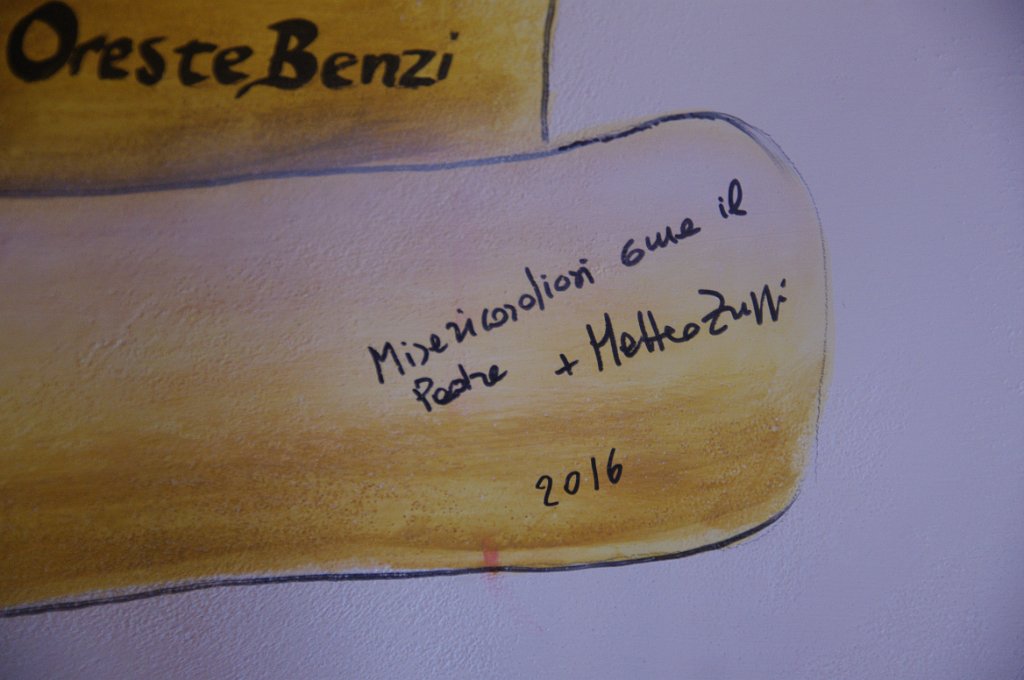 Oreste Benzi
Misericordiosi come il
Padre + Matteo Zuppi
2016